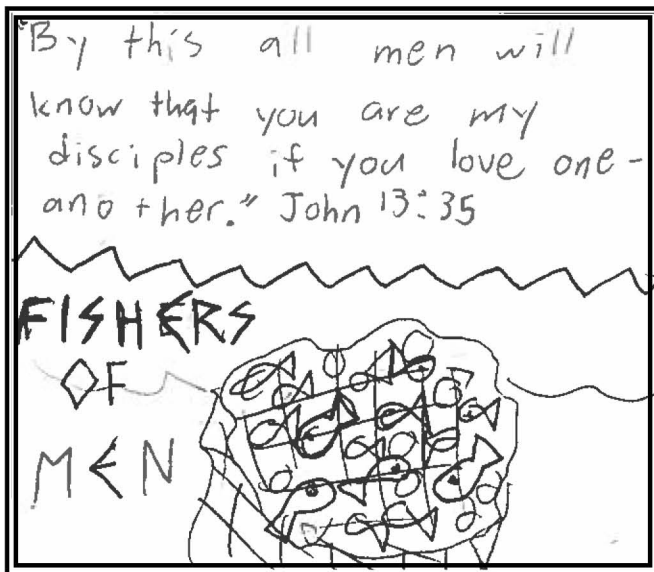 "By this all men will
know that you are my
disciples if you love one-
another." John 13:35
FISHERS
OF
MEN